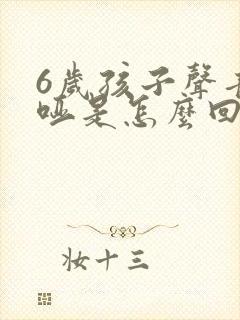 6歲孩子聲
啞是怎麼回
妝十三